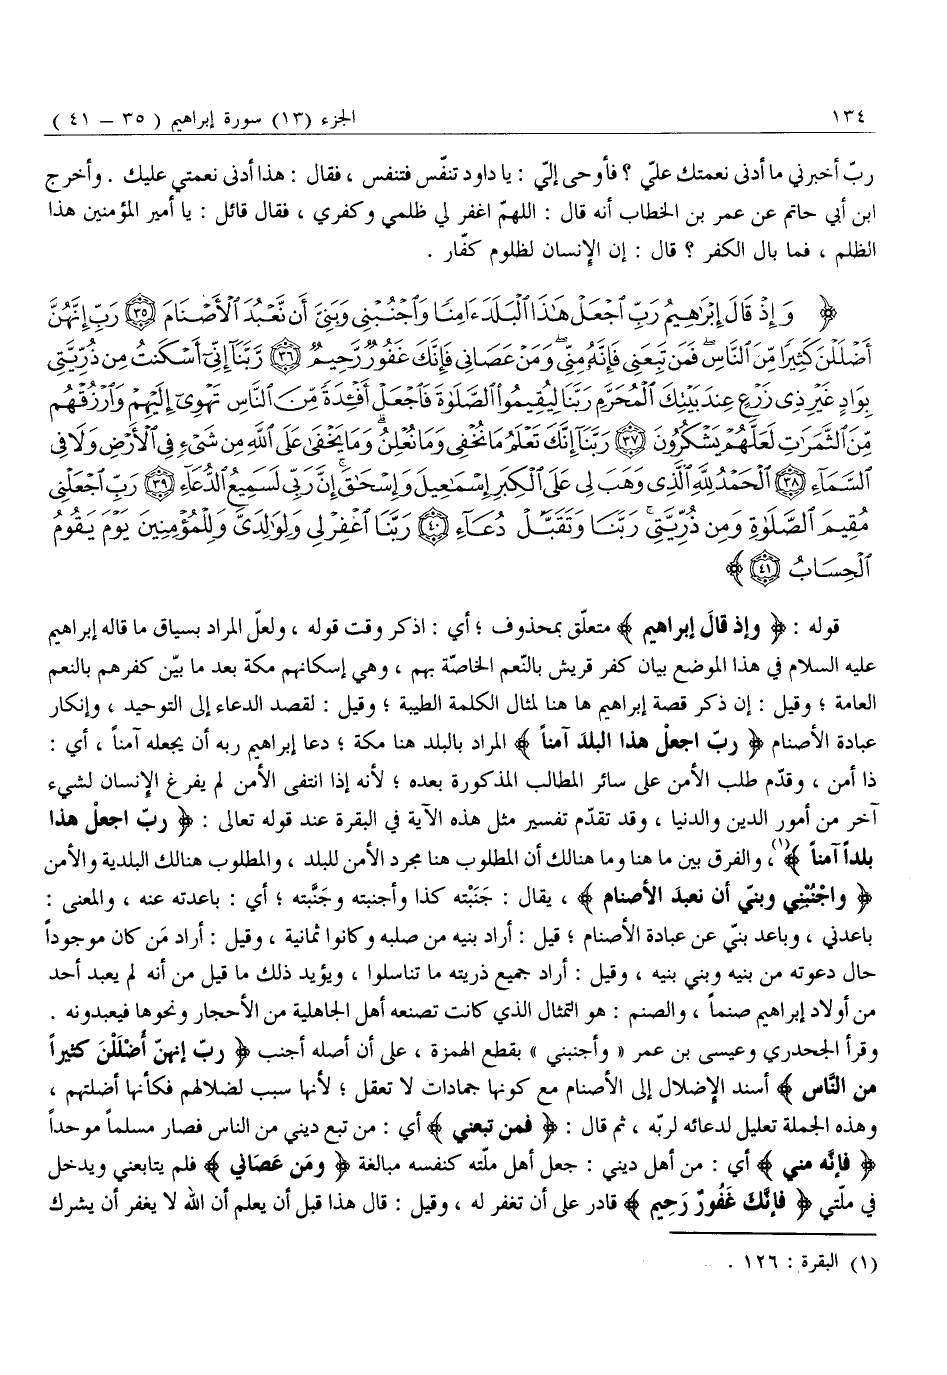 ١٣٤ الجزء (١٣) سورة إبراهيم ( ٣٥ - ٤١ )
ربّ أخبرني ما أدنى نعمتك عليّ ؟ فأوحى إليّ : يا داود تنفّس فتنفس ، فقال : هذا أدنى نعمتي عليك . وأخرج
ابن أبي حاتم عن عمر بن الخطاب أنه قال : اللهمّ اغفر لي ظلمي وكفري ، فقال قائل : يا أمير المؤمنين هذا
الظلم ، فما بال الكفر ؟ قال : إن الإنسان لظلوم كفّار .
﴿ وَإِذْ قَالَ إِبْرَٰهِيمُ رَبِّ ٱجْعَلْ هَٰذَا ٱلْبَلَدَ ءَامِنًا وَٱجْنُبْنِى وَبَنِىَّ أَن نَّعْبُدَ ٱلْأَصْنَامَ ﴿٣٥﴾ رَبِّ إِنَّهُنَّ
أَضْلَلْنَ كَثِيرًا مِّنَ ٱلنَّاسِۖ فَمَن تَبِعَنِى فَإِنَّهُۥ مِنِّىۖ وَمَنْ عَصَانِى فَإِنَّكَ غَفُورٌ رَّحِيمٌ ﴿٣٦﴾ رَّبَّنَآ إِنِّىٓ أَسْكَنتُ مِن ذُرِّيَّتِى
بِوَادٍ غَيْرِ ذِى زَرْعٍ عِندَ بَيْتِكَ ٱلْمُحَرَّمِ رَبَّنَا لِيُقِيمُوا۟ ٱلصَّلَوٰةَ فَٱجْعَلْ أَفْـِٔدَةً مِّنَ ٱلنَّاسِ تَهْوِىٓ إِلَيْهِمْ وَٱرْزُقْهُم
مِّنَ ٱلثَّمَرَٰتِ لَعَلَّهُمْ يَشْكُرُونَ ﴿٣٧﴾ رَبَّنَآ إِنَّكَ تَعْلَمُ مَا نُخْفِى وَمَا نُعْلِنُۗ وَمَا يَخْفَىٰ عَلَى ٱللَّهِ مِن شَىْءٍ فِى ٱلْأَرْضِ وَلَا فِى
ٱلسَّمَآءِ ﴿٣٨﴾ ٱلْحَمْدُ لِلَّهِ ٱلَّذِى وَهَبَ لِى عَلَى ٱلْكِبَرِ إِسْمَٰعِيلَ وَإِسْحَٰقَۚ إِنَّ رَبِّى لَسَمِيعُ ٱلدُّعَآءِ ﴿٣٩﴾ رَبِّ ٱجْعَلْنِى
مُقِيمَ ٱلصَّلَوٰةِ وَمِن ذُرِّيَّتِىۚ رَبَّنَا وَتَقَبَّلْ دُعَآءِ ﴿٤٠﴾ رَبَّنَا ٱغْفِرْ لِى وَلِوَٰلِدَىَّ وَلِلْمُؤْمِنِينَ يَوْمَ يَقُومُ
ٱلْحِسَابُ ﴿٤١﴾ ﴾
قوله : ﴿ وإذ قالَ إبراهيم ﴾ متعلّق بمحذوف ؛ أي : اذكر وقت قوله ، ولعلّ المراد بسياق ما قاله إبراهيم
عليه السلام في هذا الموضع بيان كفر قريش بالنّعم الخاصّة بهم ، وهي إسكانهم مكة بعد ما بيّن كفرهم بالنعم
العامة ؛ وقيل : إن ذكر قصة إبراهيم ها هنا لمثال الكلمة الطيبة ؛ وقيل : لقصد الدعاء إلى التوحيد ، وإنكار
عبادة الأصنام ﴿ ربّ اجعلْ هذا البلدَ آمناً ﴾ المراد بالبلد هنا مكة ؛ دعا إبراهيم ربه أن يجعله آمناً ، أي :
ذا أمن ، وقدّم طلب الأمن على سائر المطالب المذكورة بعده ؛ لأنه إذا انتفى الأمن لم يفرغ الإنسان لشيء
آخر من أمور الدين والدنيا ، وقد تقدّم تفسير مثل هذه الآية في البقرة عند قوله تعالى : ﴿ ربّ اجعلْ هذا
بلداً آمناً ﴾(١)، والفرق بين ما هنا وما هنالك أن المطلوب هنا مجرد الأمن للبلد ، والمطلوب هنالك البلدية والأمن
﴿ واجْنُبْنِي وبنيّ أن نعبدَ الأصنام ﴾ ، يقال : جَنَبْته كذا وأجنبته وجَنَّبته ؛ أي : باعدته عنه ، والمعنى :
باعدني ، وباعد بنيّ عن عبادة الأصنام ؛ قيل : أراد بنيه من صلبه وكانوا ثمانية ، وقيل : أراد مَن كان موجوداً
حال دعوته من بنيه وبني بنيه ، وقيل : أراد جميع ذريته ما تناسلوا ، ويؤيد ذلك ما قيل من أنه لم يعبد أحد
من أولاد إبراهيم صنماً ، والصنم : هو التمثال الذي كانت تصنعه أهل الجاهلية من الأحجار ونحوها فيعبدونه .
وقرأ الجحدري وعيسى بن عمر « وأجنبني » بقطع الهمزة ، على أن أصله أجنب ﴿ ربّ إنهنّ أَضْلَلْنَ كثيراً
من النَّاس ﴾ أسند الإضلال إلى الأصنام مع كونها جمادات لا تعقل ؛ لأنها سبب لضلالهم فكأنها أضلتهم ،
وهذه الجملة تعليل لدعائه لربّه ، ثم قال : ﴿ فمن تبعني ﴾ أي : من تبع ديني من الناس فصار مسلماً موحداً
﴿ فإنَّه مني ﴾ أي : من أهل ديني : جعل أهل ملّته كنفسه مبالغة ﴿ ومَن عَصَاني ﴾ فلم يتابعني ويدخل
في ملّتي ﴿ فإنَّكَ غَفُورٌ رَحِيم ﴾ قادر على أن تغفر له ، وقيل : قال هذا قبل أن يعلم أن الله لا يغفر أن يشرك
(١) البقرة : ١٢٦ .